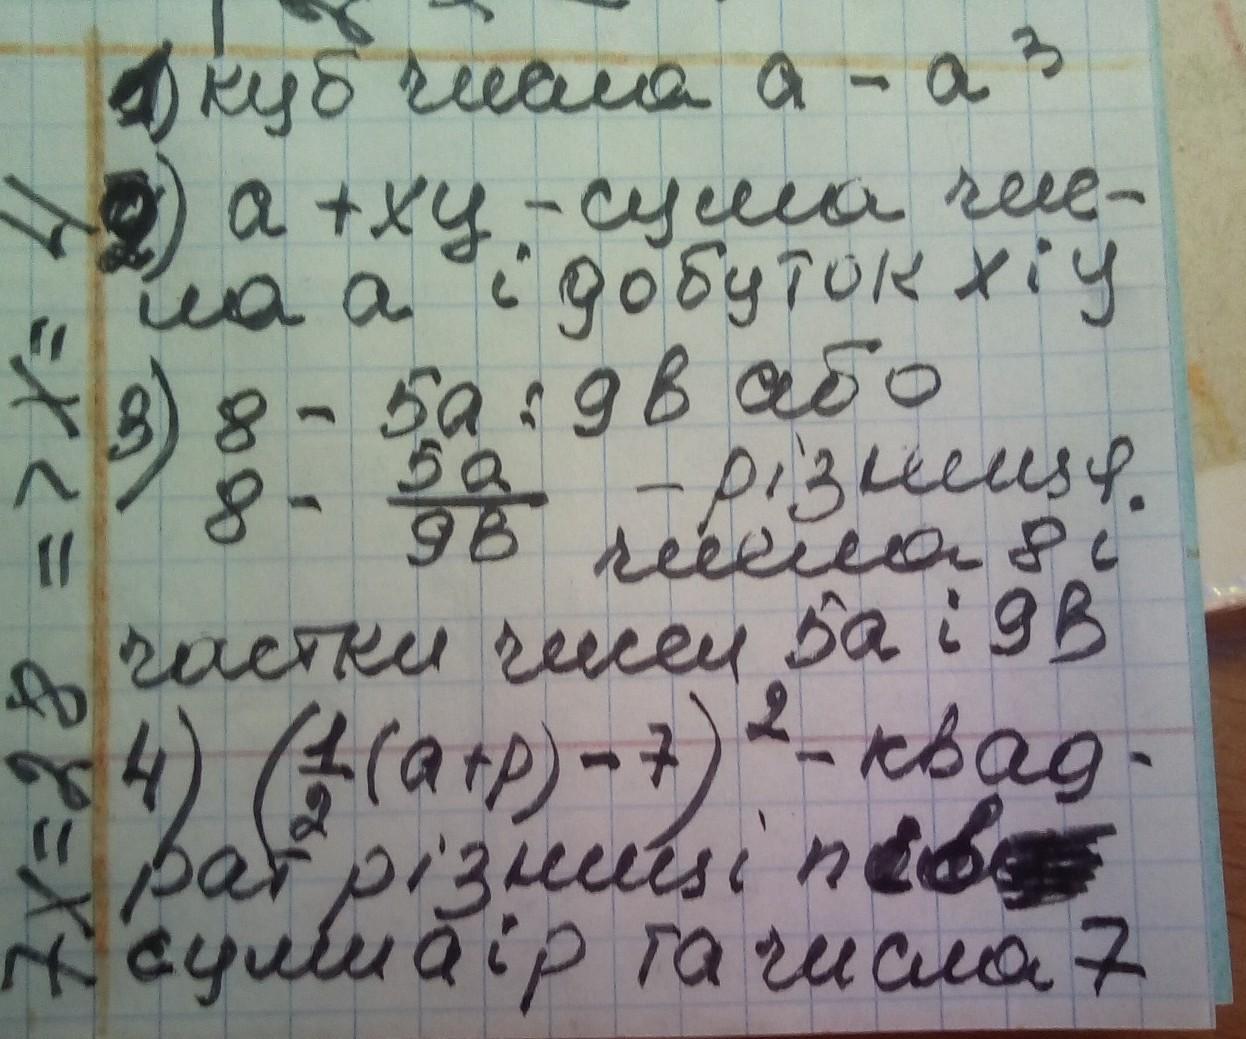 1) куб числа a - a³
2) a + xy - сума чис-
ла a і добуток x і y
3) 8 - 5a : 9в або
8 - 5a/9в - різниця
числа 8 і
частки чисел 5a і 9в
4) (1/2(a+p) - 7)² - квад-
рат різниці пів
суми a і p та числа 7
7x = 28 => x = 4